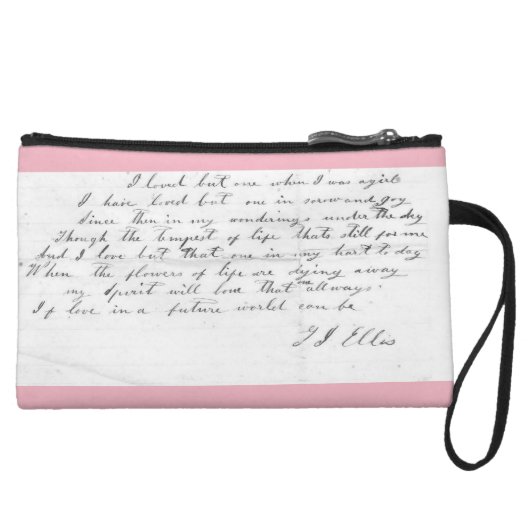 I loved but one when I was a girl
I have loved but one in sorow and goy
Since then in my wonderings under the sky
Though the tempest of life thats still for me
And I love but that one in my hart to day
When the flowers of life are dying away
my spirit will love that one allways.
If love in a future world can be
G J Ellis